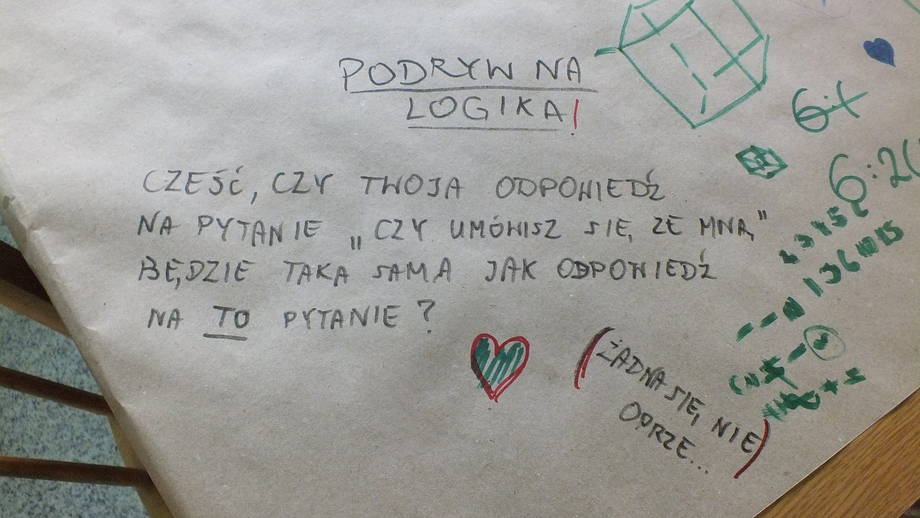 PODRYW NA
LOGIKA!
CZEŚĆ, CZY TWOJA ODPOWIEDŹ
NA PYTANIE „CZY UMÓWISZ SIĘ ZE MNĄ"
BĘDZIE TAKA SAMA JAK ODPOWIEDŹ
NA TO PYTANIE?
(ŻADNA SIĘ NIE
OPRZE...)
6:
6:2(
2 3 4 5 6